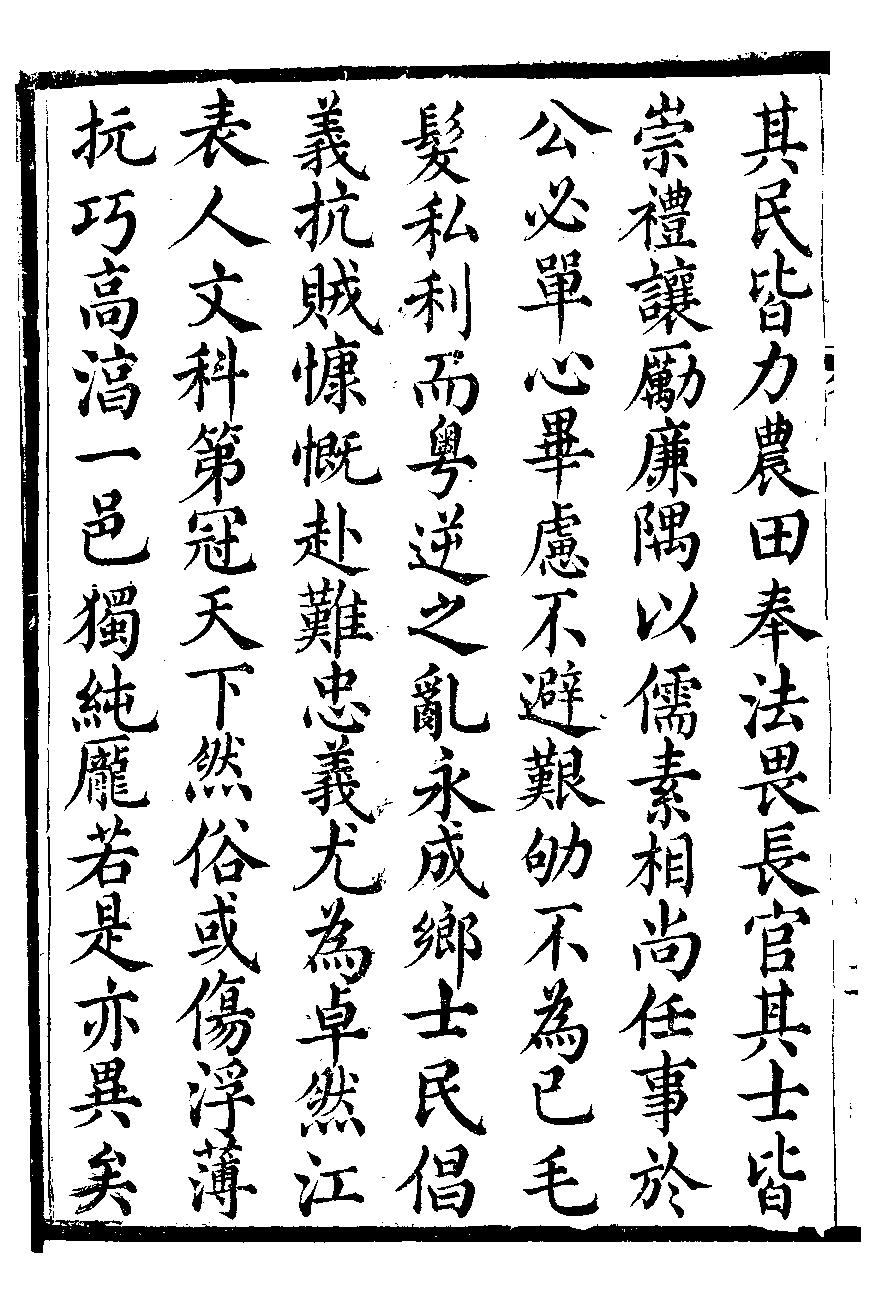 其民皆力農田奉法畏長官其士皆
崇禮讓厲廉隅以儒素相尚任事於
公必單心畢慮不避艱劬不為已毛
髮私利而粵逆之亂永成鄉士民倡
義抗賊慷慨赴難忠義尤為卓然江
表人文科第冠天下然俗或傷浮薄
抏巧高淳一邑獨純龐若是亦異矣